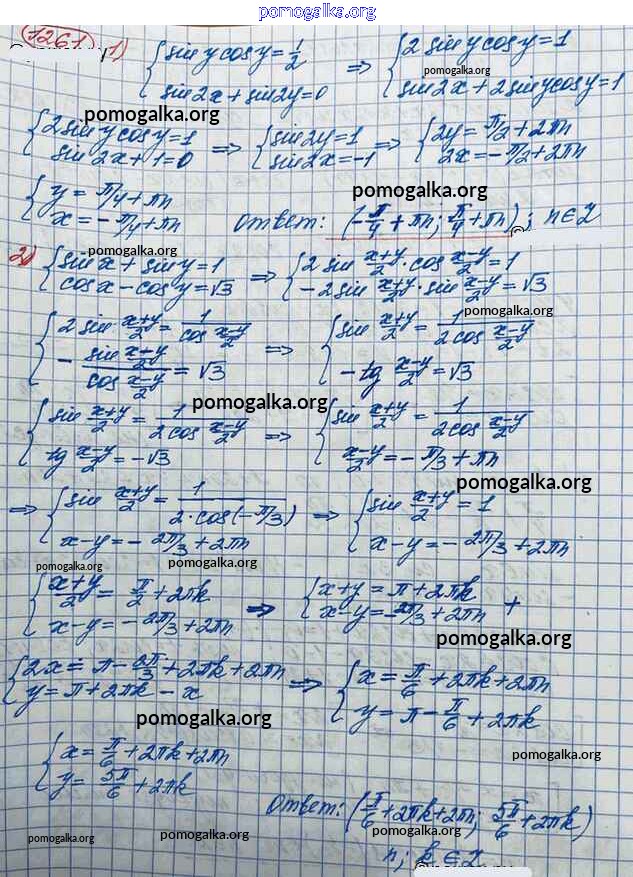 pomogalka.org
1261 1) { sin y cos y = 1/2 ; sin 2x + sin 2y = 0 ⇒ { 2 sin y cos y = 1 ; sin 2x + 2 sin y cos y = 1
pomogalka.org
{ 2 sin y cos y = 1 ; sin 2x + 1 = 0 ⇒ { sin 2y = 1 ; sin 2x = -1 ⇒ { 2y = π/2 + 2πn ; 2x = -π/2 + 2πn
pomogalka.org
{ y = π/4 + πn ; x = -π/4 + πn ответ: (-π/4 + πn; π/4 + πn); n ∈ Z
pomogalka.org
pomogalka.org
2) { sin x + sin y = 1 ; cos x - cos y = √3 ⇒ { 2 sin (x+y)/2 · cos (x-y)/2 = 1 ; -2 sin (x+y)/2 · sin (x-y)/2 = √3
pomogalka.org
{ 2 sin (x+y)/2 = 1/(cos (x-y)/2) ; - (sin (x-y)/2)/(cos (x-y)/2) = √3 ⇒ { sin (x+y)/2 = 1/(2 cos (x-y)/2) ; -tg (x-y)/2 = √3
pomogalka.org
{ sin (x+y)/2 = 1/(2 cos (x-y)/2) ; tg (x-y)/2 = -√3 ⇒ { sin (x+y)/2 = 1/(2 cos (x-y)/2) ; (x-y)/2 = -π/3 + πn
pomogalka.org
⇒ { sin (x+y)/2 = 1/(2·cos(-π/3)) ; x-y = -2π/3 + 2πn ⇒ { sin (x+y)/2 = 1 ; x-y = -2π/3 + 2πn
pomogalka.org
pomogalka.org
{ (x+y)/2 = π/2 + 2πk ; x-y = -2π/3 + 2πn ⇒ { x+y = π + 2πk ; x-y = -2π/3 + 2πn +
pomogalka.org
{ 2x = π - 2π/3 + 2πk + 2πn ; y = π + 2πk - x ⇒ { x = π/6 + 2πk + 2πn ; y = π - π/6 + 2πk
pomogalka.org
{ x = π/6 + 2πk + 2πn ; y = 5π/6 + 2πk
pomogalka.org
Ответ: (π/6 + 2πk + 2πn; 5π/6 + 2πk)
n; k ∈ Z
pomogalka.org
pomogalka.org
pomogalka.org